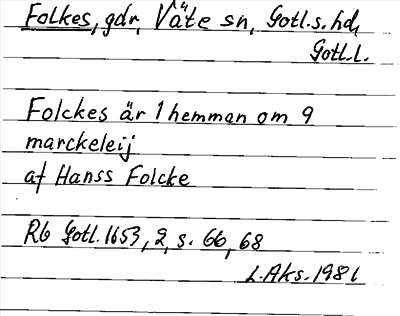 Folkes, gdr, Väte sn, Gotl.s. hd,
Gotl.l.
Folckes är 1 hemman om 9
marckeleij
af Hanss Folcke
Rb Gotl. 1653, 2, s. 66, 68
L.Aks. 1981